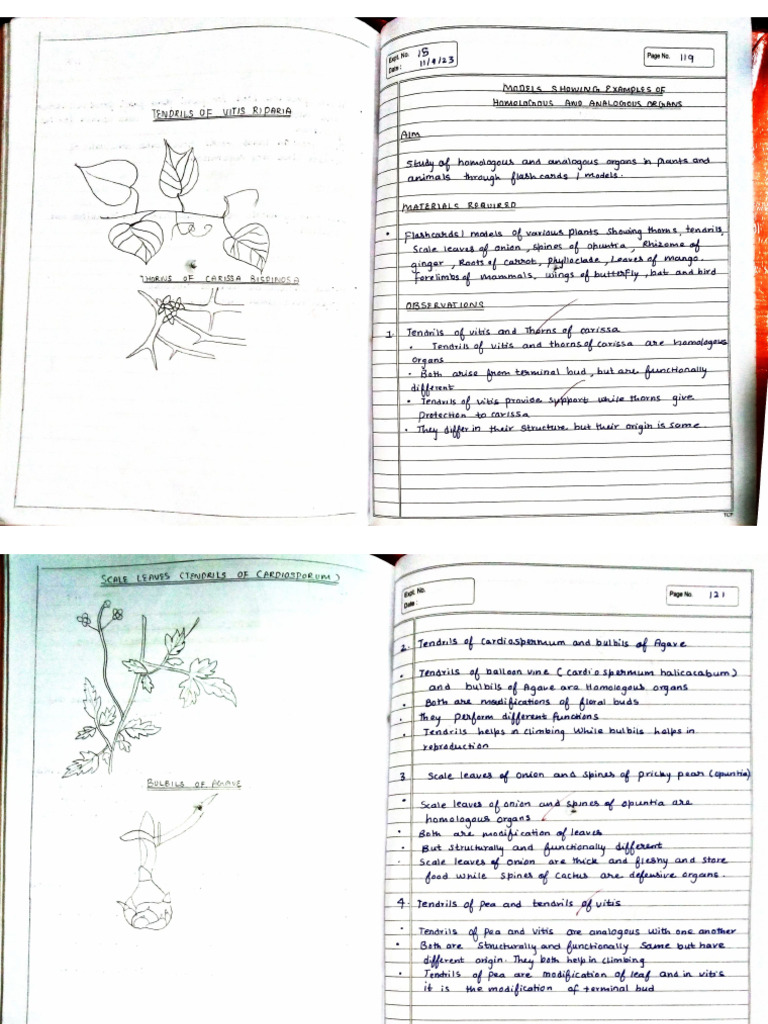 TENDRILS OF VITIS RIDARIA
THORNS OF CARISSA BISPINOSA
Expt. No. 15
Date : 11/9/23
Page No. 119
MODELS SHOWING EXAMPLES OF
HOMOLOGOUS AND ANALOGOUS ORGANS
AIM
Study of homologous and analogous organs in plants and
animals through flash cards / models.
MATERIALS REQUIRED
• Flashcards / models of various plants showing thorns, tendrils,
Scale leaves of onion, spines of opuntia, Rhizome of
ginger, Roots of carrot, phylloclade, Leaves of mango.
Forelimbs of mammals, wings of butterfly, bat and bird
OBSERVATIONS
1. Tendrils of vitis and Thorns of carissa
• Tendrils of vitis and thorns of carissa are homologous
organs
• Both arise from terminal bud, but are functionally
different
• Tendrils of vitis provide support while thorns give
protection to carissa
• They differ in their structure but their origin is same.
SCALE LEAVES (TENDRILS OF CARDIOSPORUM)
BULBILS OF AGAVE
Expt. No.
Date :
Page No. 121
2. Tendrils of cardiospermum and bulbils of Agave
• Tendrils of balloon vine (cardiospermum halicacabum)
and bulbils of Agave are Homologous organs
• Both are modifications of floral buds
• They perform different functions
• Tendrils helps in climbing while bulbils helps in
reproduction
3. Scale leaves of onion and spines of pricky pear (opuntia)
• Scale leaves of onion and spines of opuntia are
homologous organs
• Both are modification of leaves
• But structurally and functionally different
• Scale leaves of onion are thick and fleshy and store
food while spines of cactus are defensive organs.
4. Tendrils of pea and tendrils of vitis
• Tendrils of pea and vitis are analogous with one another
• Both are structurally and functionally same but have
different origin. They both help in climbing
• Tendrils of pea are modification of leaf and in vitis
it is the modification of terminal bud